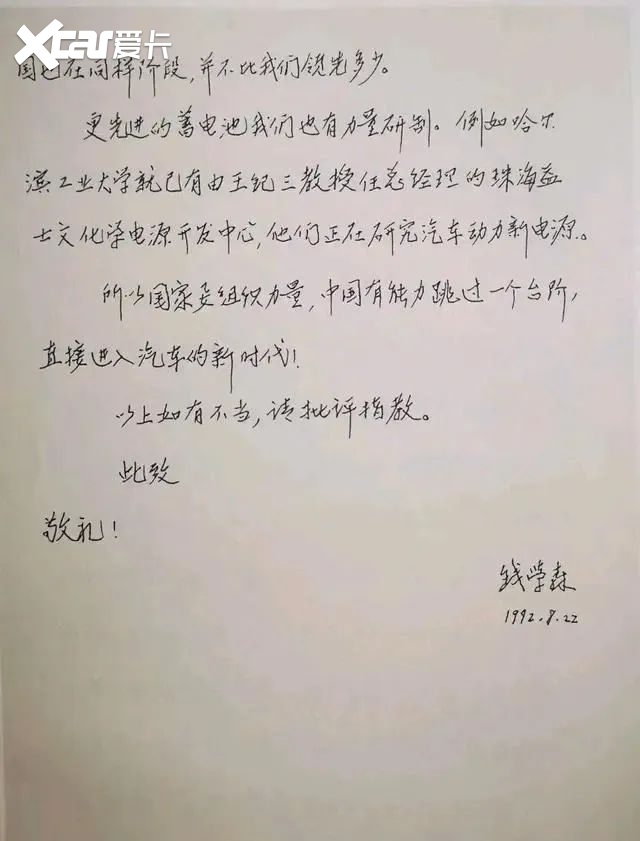 Xcar爱卡
国也在同样阶段,并不比我们领先多少。
更先进的蓄电池我们也有力量研制。例如哈尔
滨工业大学就已有由王纪三教授任总经理的珠海益
士文化学电源开发中心,他们正在研究汽车动力新电源。
所以国家要组织力量,中国有能力跳过一个台阶,
直接进入汽车的新时代!
以上如有不当,请批评指教。
此致
敬礼!
钱学森
1992.8.22